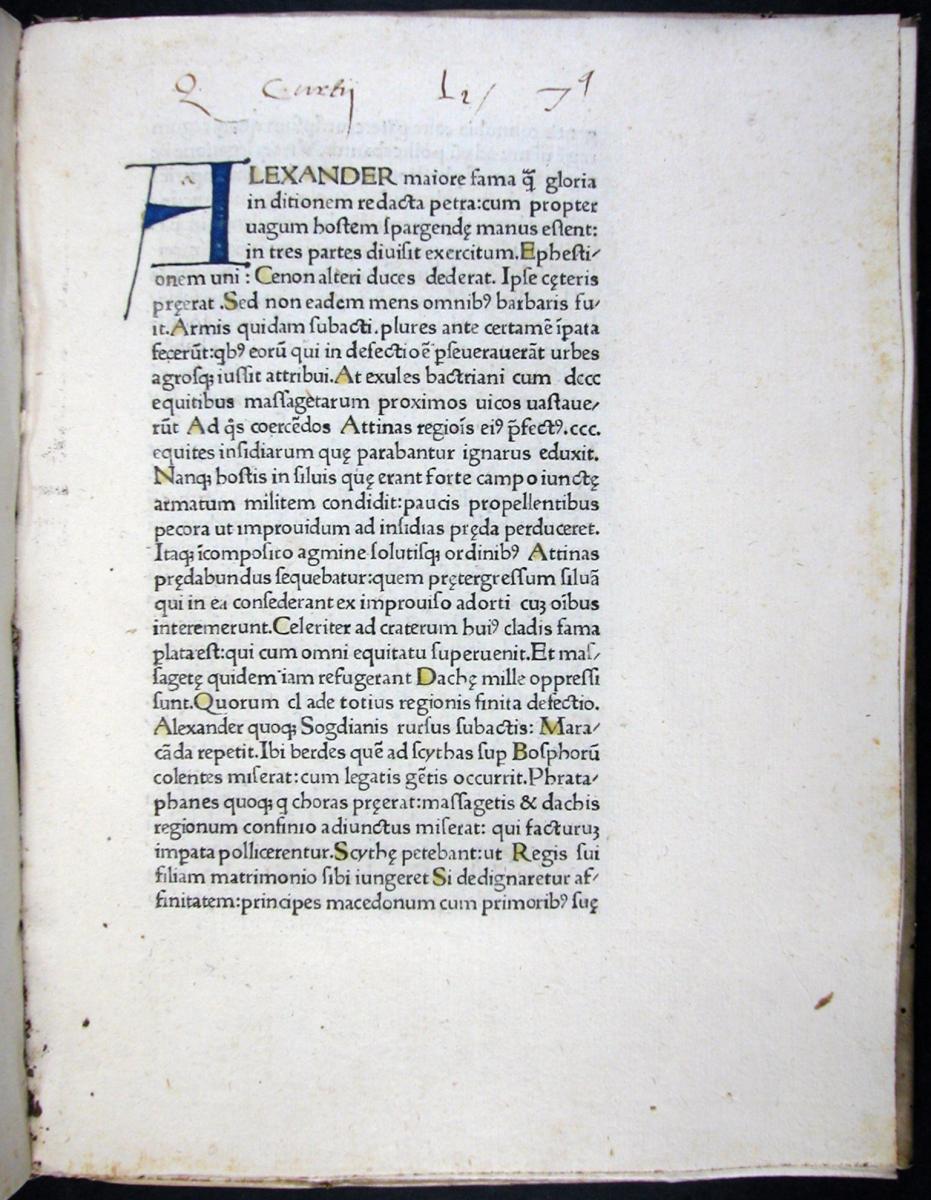 Q Curtij
ALEXANDER maiore fama q̃ gloria
in ditionem redacta petra:cum propter
uagum hoſtem ſpargendę manus eſſent:
in tres partes diuiſit exercitum.Epheſti/
onem uni : Cenon alteri duces dederat. Ipſe cęteris
pręerat .Sed non eadem mens omnibꝰ barbaris fu/
it.Armis quidam ſubacti.plures ante certamē īpata
fecerūt:qbꝰ eorū qui in defectioē pſeuerauerāt urbes
agroſqꝫ iuſſit attribui.At exules bactriani cum dccc
equitibus maſſagetarum proximos uicos uaſtaue/
rūt Ad q̄s coercēdos Attinas regiōīs eiꝰ p̄fectꝰ.ccc.
equites inſidiarum quę parabantur ignarus eduxit.
Nanqꝫ hoſtis in ſiluis quę erant forte campo iunctę
armatum militem condidit:paucis propellentibus
pecora ut improuidum ad inſidias pręda perduceret.
Itaqꝫ īcompoſito agmine ſolutiſqꝫ ordinibꝰ Attinas
prędabundus ſequebatur:quem prętergreſſum ſiluā
qui in ea conſederant ex improuiſo adorti cuꝫ oībus
interemerunt.Celeriter ad craterum huiꝰ cladis fama
plata eſt:qui cum omni equitatu ſuperuenit.Et maſ/
ſagetę quidem iam refugerant Dachę mille oppreſſi
ſunt.Quorum cl ade totius regionis finita defectio.
Alexander quoqꝫ Sogdianis rurſus ſubactis: Mara/
cā da repetit.Ibi berdes quē ad ſcythas ſup Boſphorū
colentes miſerat:cum legatis gētis occurrit.Phrata/
phanes quoqꝫ q choras pręerat:maſſagetis & dachis
regionum confinio adiunctus miſerat: qui facturuꝫ
impata pollicerentur.Scythę petebant:ut Regis ſui
filiam matrimonio ſibi iungeret Si dedignaretur af/
finitatem:principes macedonum cum primoribꝰ ſuę